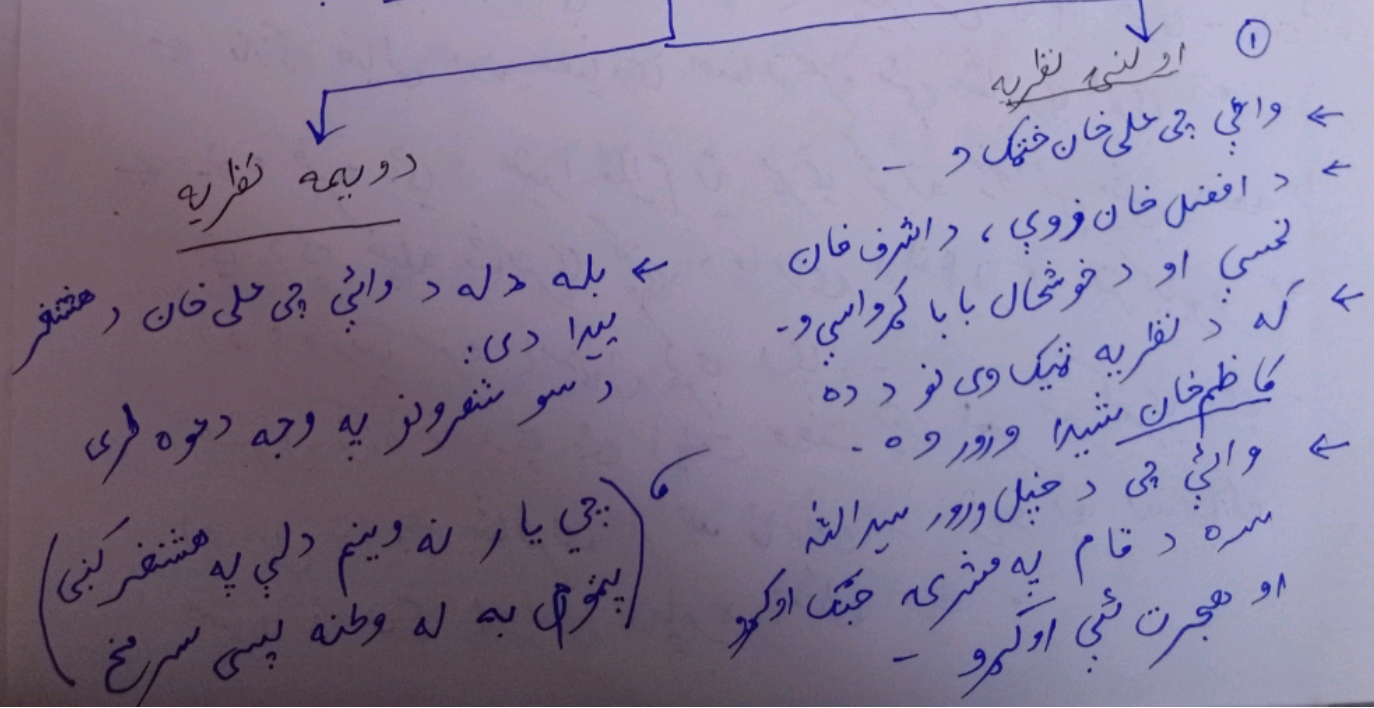 ۱
اولنی نظریہ
← وائي چی علی خان خټک و -
← د افضل خان زوي ، د اشرف خان
نمسي او د خوشحال بابا کړواسي و -
← که د نظریه ټیک وی نو د ده
کاظم خان شیدا ورور وه -
← وائي چی د خپل ورور سیدالله
سره د قام په مشرۍ جنګ اوکړو
او هجرت ئې اوکړو -
دویمه نظریه
← بله ډله د وائي چی علی خان د هشنغر
پیدا دی :
د سو شعرونو په وجه دعوه لری
(چي یار نه وینم دلې په هشنغر کښی
به له وطنه پسی سر مخ)